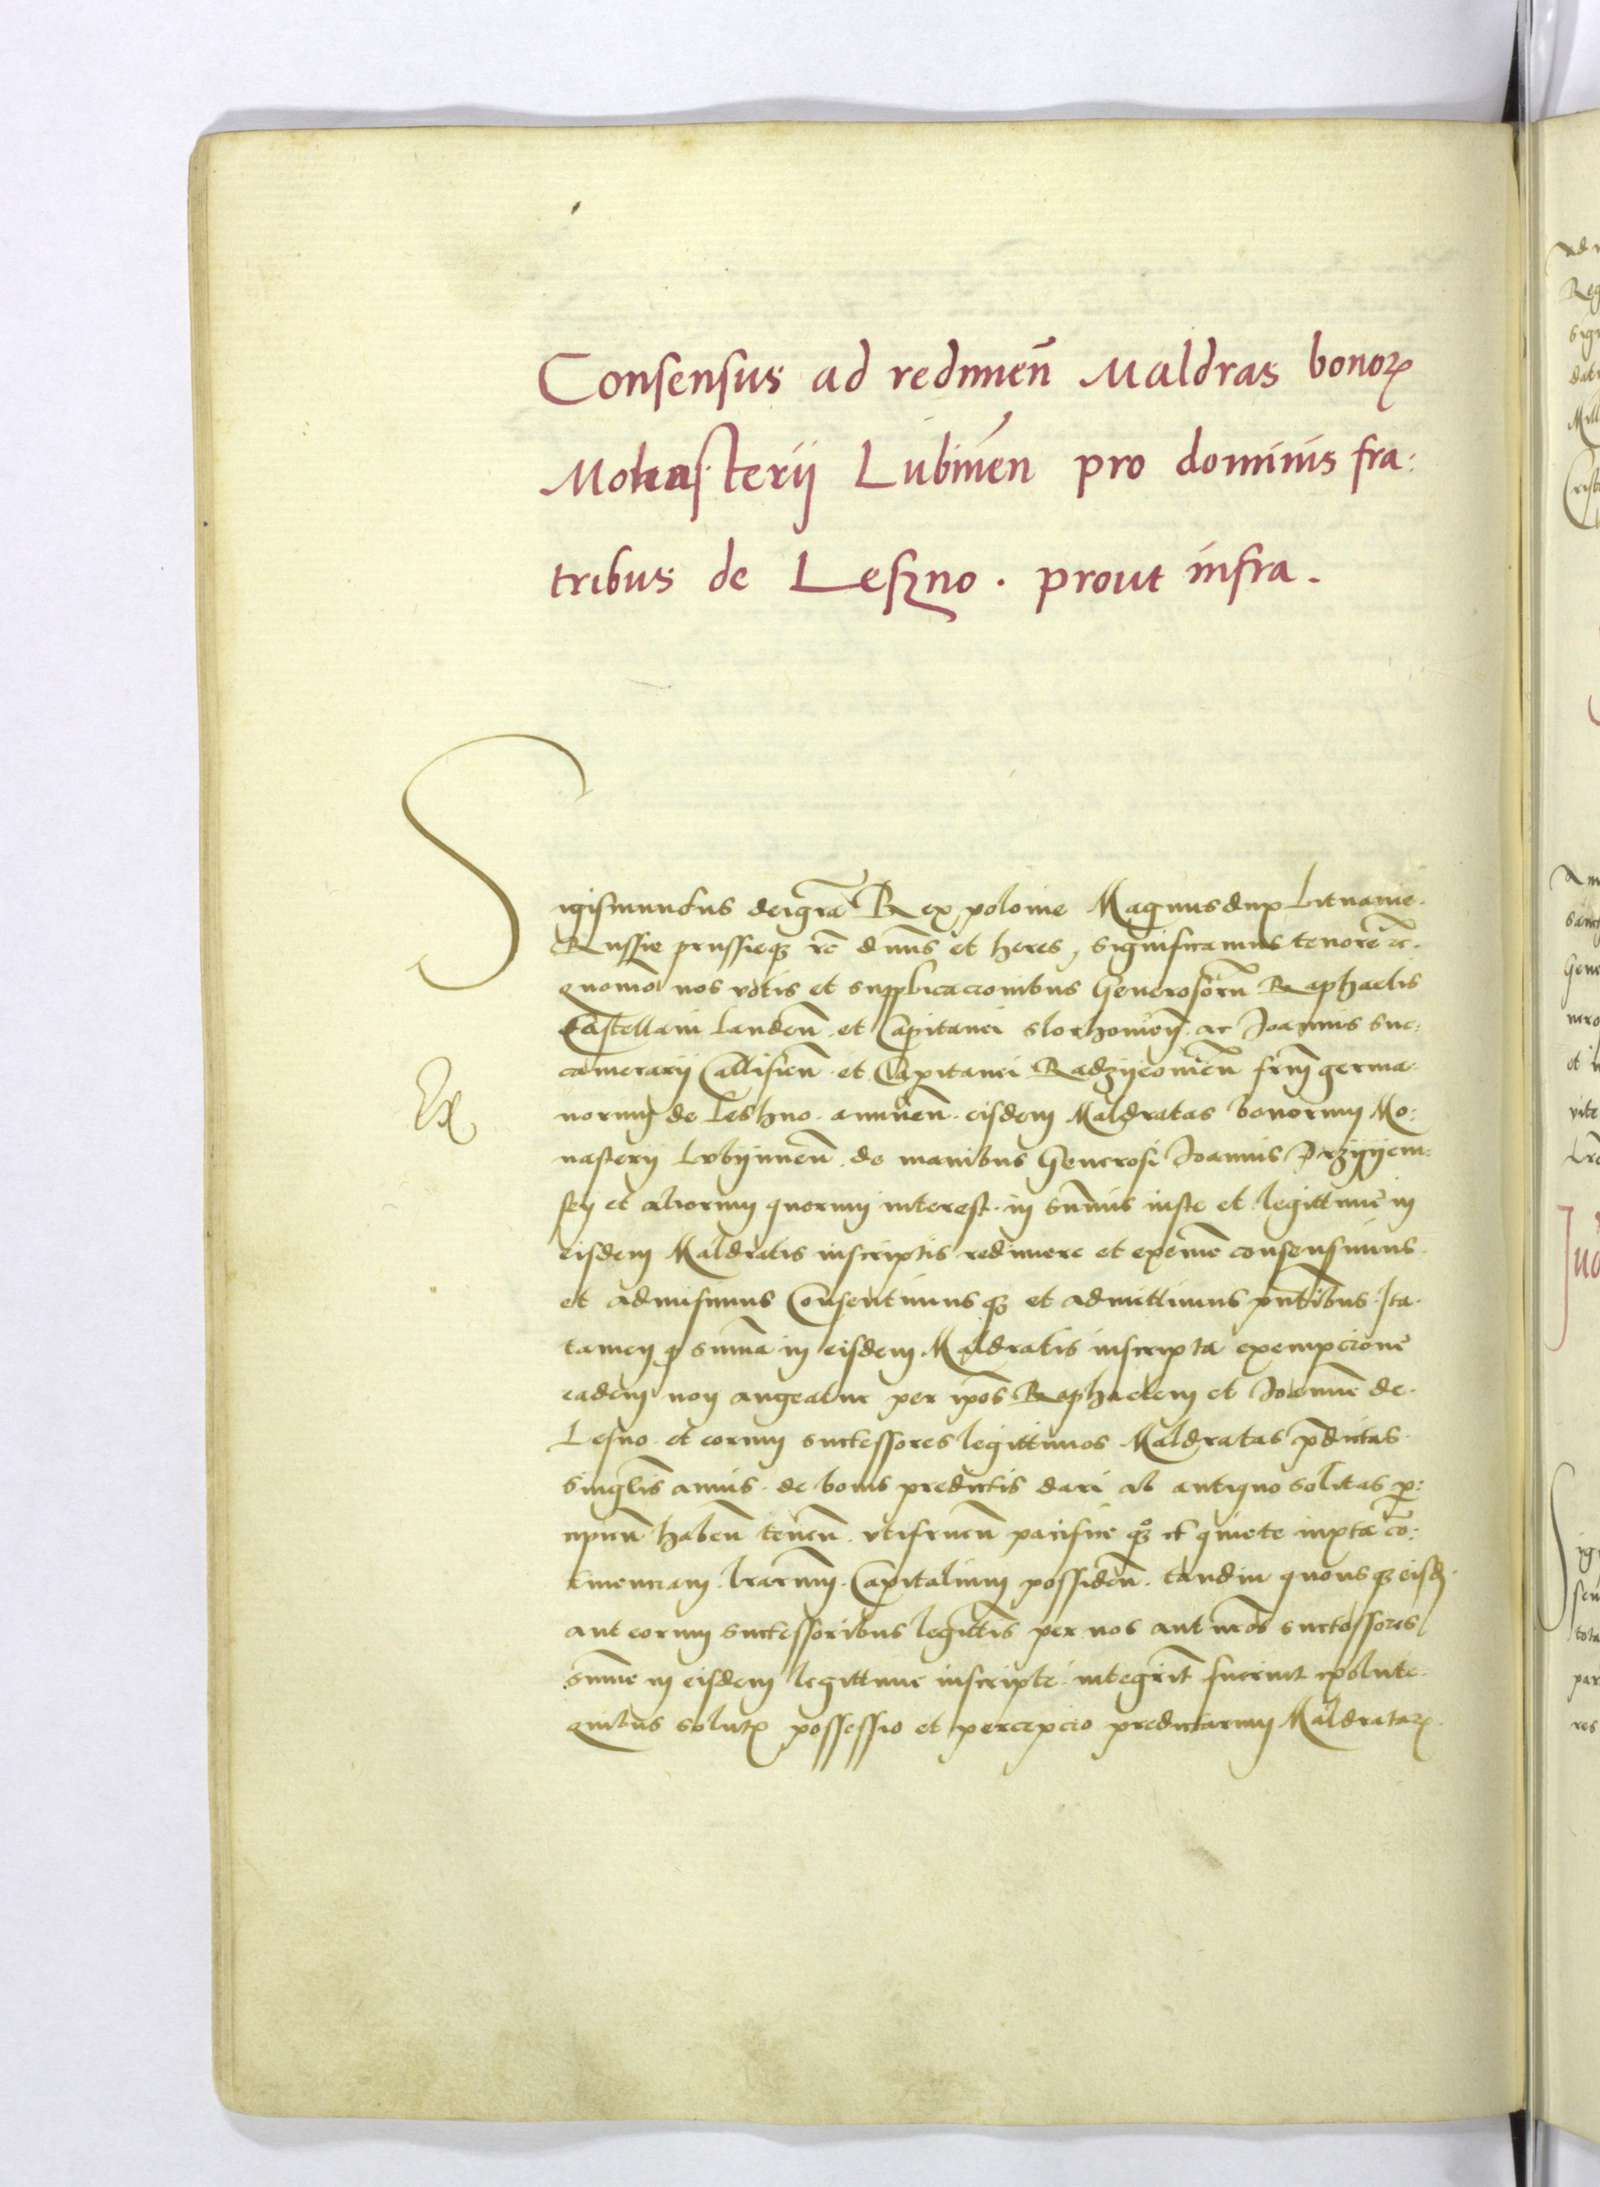 Consensus ad redimen̄ Maldras bonoꝝ
Monasterij Lubinen̄ pro dominis fra:
tribus de Leszno . prout infra .
Sigismundus dei gr̄a Rex polonie Magnus dux Lituanie.
Russie prussieqꝫ rc̄ dn̄us et heres, significamus tenore rc̄.
quomō nos votis et supplicacionibus Generosorū Raphaelis
Castellani Landen̄ et Capitanei slochouien̄ . ac Joannis suc:
camerarij Callisien̄ . et Capitanei Radzijeouien̄ frm̄ germa:
Ex
norum de Leshno . annuen̄ . eisdem Maldratas bonorum Mo:
nasterij Lubijnnen̄ . de manibus Generosi Joannis Przijijem:
sky et aliorum quorum interest . in sum̄is iuste et legittime in
eisdem Maldratis inscriptis redimere et exemē consensimus
et admisimus Consentimusqꝫ et admittimus pn̄tibus . Ita.
tamen ꝙ sum̄a in eisdem Maldratis inscripta exempcione
eadem non augeatur per ip̄os Raphaelem et Joannē de.
Lesno . et eorum successores legittimos . Maldratas p̄dictas.
singl̄is annis . de bonis predictis dari ab antiquo solitas ꝑ:
cipien̄ haben̄ tenen̄ . vtifruen̄ pacificeqꝫ et quiete iuxta cō:
tinenciam . lr̄arum . Capitalium possiden̄ . tamdiu quousqꝫ eisd.
aut eorum successoribus legittīs per nos aut nr̄os successores
sum̄e in eisdem legittime inscripte . integrīt fuerint exolute.
quibus solutꝭ possessio et percepcio predictarum Maldrataꝝ